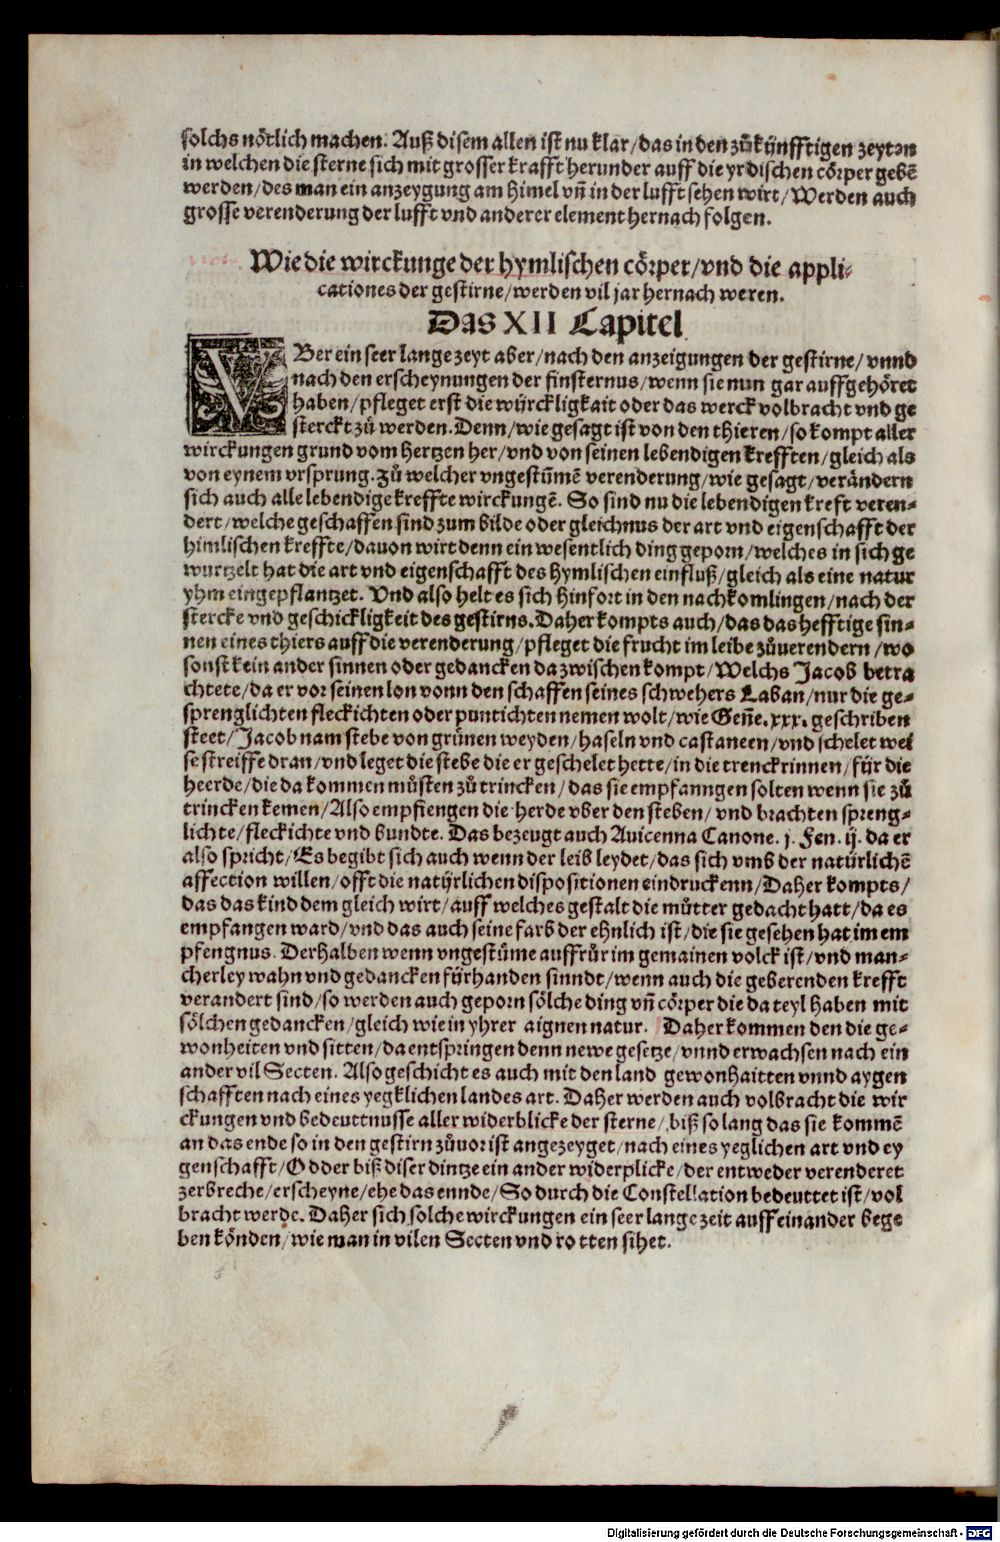 solchs nötlich machen. Auß disem allen ist nu klar/das in den zůkÿnfftigen zeyten
in welchen die sterne sich mit grosser krafft herunder auff die yrdischen cörper gebē
werden/des man ein anzeygung am himel vn̄ in der lufft sehen wirt/Werden auch
grosse verenderung der lufft vnd anderer element hernach folgen.
Wie die wirckunge der hymlischen cörper/vnd die appli-
cationes der gestirne/werden vil jar hernach weren.
Das XII Capitel
VBer ein seer lange zeyt aber/nach den anzeigungen der gestirne/vnnd
nach den erscheynungen der finsternus/wenn sie nun gar auffgehöret
haben/pfleget erst die würckligkait oder das werck volbracht vnd ge
sterckt zů werden. Denn/wie gesagt ist von den thieren/so kompt aller
wirckungen grund vom hertzen her/vnd von seinen lebendigen krefften/gleich als
von eynem vrsprung. Zů welcher vngestümē verenderung/wie gesagt/verändern
sich auch alle lebendige kreffte wirckungē. So sind nu die lebendigen kreft veren-
dert/welche geschaffen sind zum bilde oder gleichnus der art vnd eigenschafft der
himlischen kreffte/dauon wirt denn ein wesentlich ding geporn/welches in sich ge
wurtzelt hat die art vnd eigenschafft des hymlischen einfluß/gleich als eine natur
yhm eingepflantzet. Vnd also helt es sich hinfort in den nachkomlingen/nach der
stercke vnd geschickligkeit des gestirns. Daher kompts auch/das das hefftige sin-
nen eines thiers auff die verenderung/pfleget die frucht im leibe zůuerendern/wo
sonst kein ander sinnen oder gedancken dazwischen kompt/Welchs Jacob betra
chtete/da er vor seinen lon vonn den schaffen seines schwehers Laban/nur die ge-
sprenglichten fleckichten oder puntichten nemen wolt/wie Geñe. xxx. geschriben
steet/Jacob nam stebe von grünen weyden/haseln vnd castaneen/vnd schelet wei
se streiffe dran/vnd leget die stebe die er geschelet hette/in die trenckrinnen/für die
heerde/die da kommen müsten zů trincken/das sie empfanngen solten wenn sie zů
trincken kemen/Also empfiengen die herde vber den steben/vnd brachten spreng-
lichte/fleckichte vnd bundte. Das bezeugt auch Auicenna Canone. j. Fen. ij. da er
also spricht/Es begibt sich auch wenn der leib leydet/das sich vmb der natürlichē
affection willen/offt die natÿrlichen dispositionen eindruckenn/Daher kompts/
das das kind dem gleich wirt/auff welches gestalt die můtter gedacht hatt/da es
empfangen ward/vnd das auch seine farb der ehnlich ist/die sie gesehen hat im em
pfengnus. Derhalben wenn vngestüme auffrůr im gemainen volck ist/vnd man-
cherley wahn vnd gedancken fÿrhanden sinndt/wenn auch die geberenden krefft
verandert sind/so werden auch geporn sölche ding vn̄ cörper die da teyl haben mit
sölchen gedancken/gleich wie in yhrer aignen natur. Daher kommen den die ge-
wonheiten vnd sitten/da entspringen denn newe gesetze/vnnd erwachsen nach ein
ander vil Secten. Also geschicht es auch mit den land gewonhaitten vnnd aygen
schafften nach eines yegklichen landes art. Daher werden auch volbracht die wir
ckungen vnd bedeuttnusse aller widerblicke der sterne/biß so lang das sie kommē
an das ende so in den gestirn zůuor ist angezeyget/nach eines yeglichen art vnd ey
genschafft/Odder biß diser dintze ein ander widerplicke/der entweder verenderet
zerbreche/erscheyne/ehe das ennde/So durch die Constellation bedeuttet ist/vol
bracht werde. Daher sich solche wirckungen ein seer lange zeit auff einander bege
ben könden/wie man in vilen Secten vnd rotten sihet.
Digitalisierung gefördert durch die Deutsche Forschungsgemeinschaft - DFG